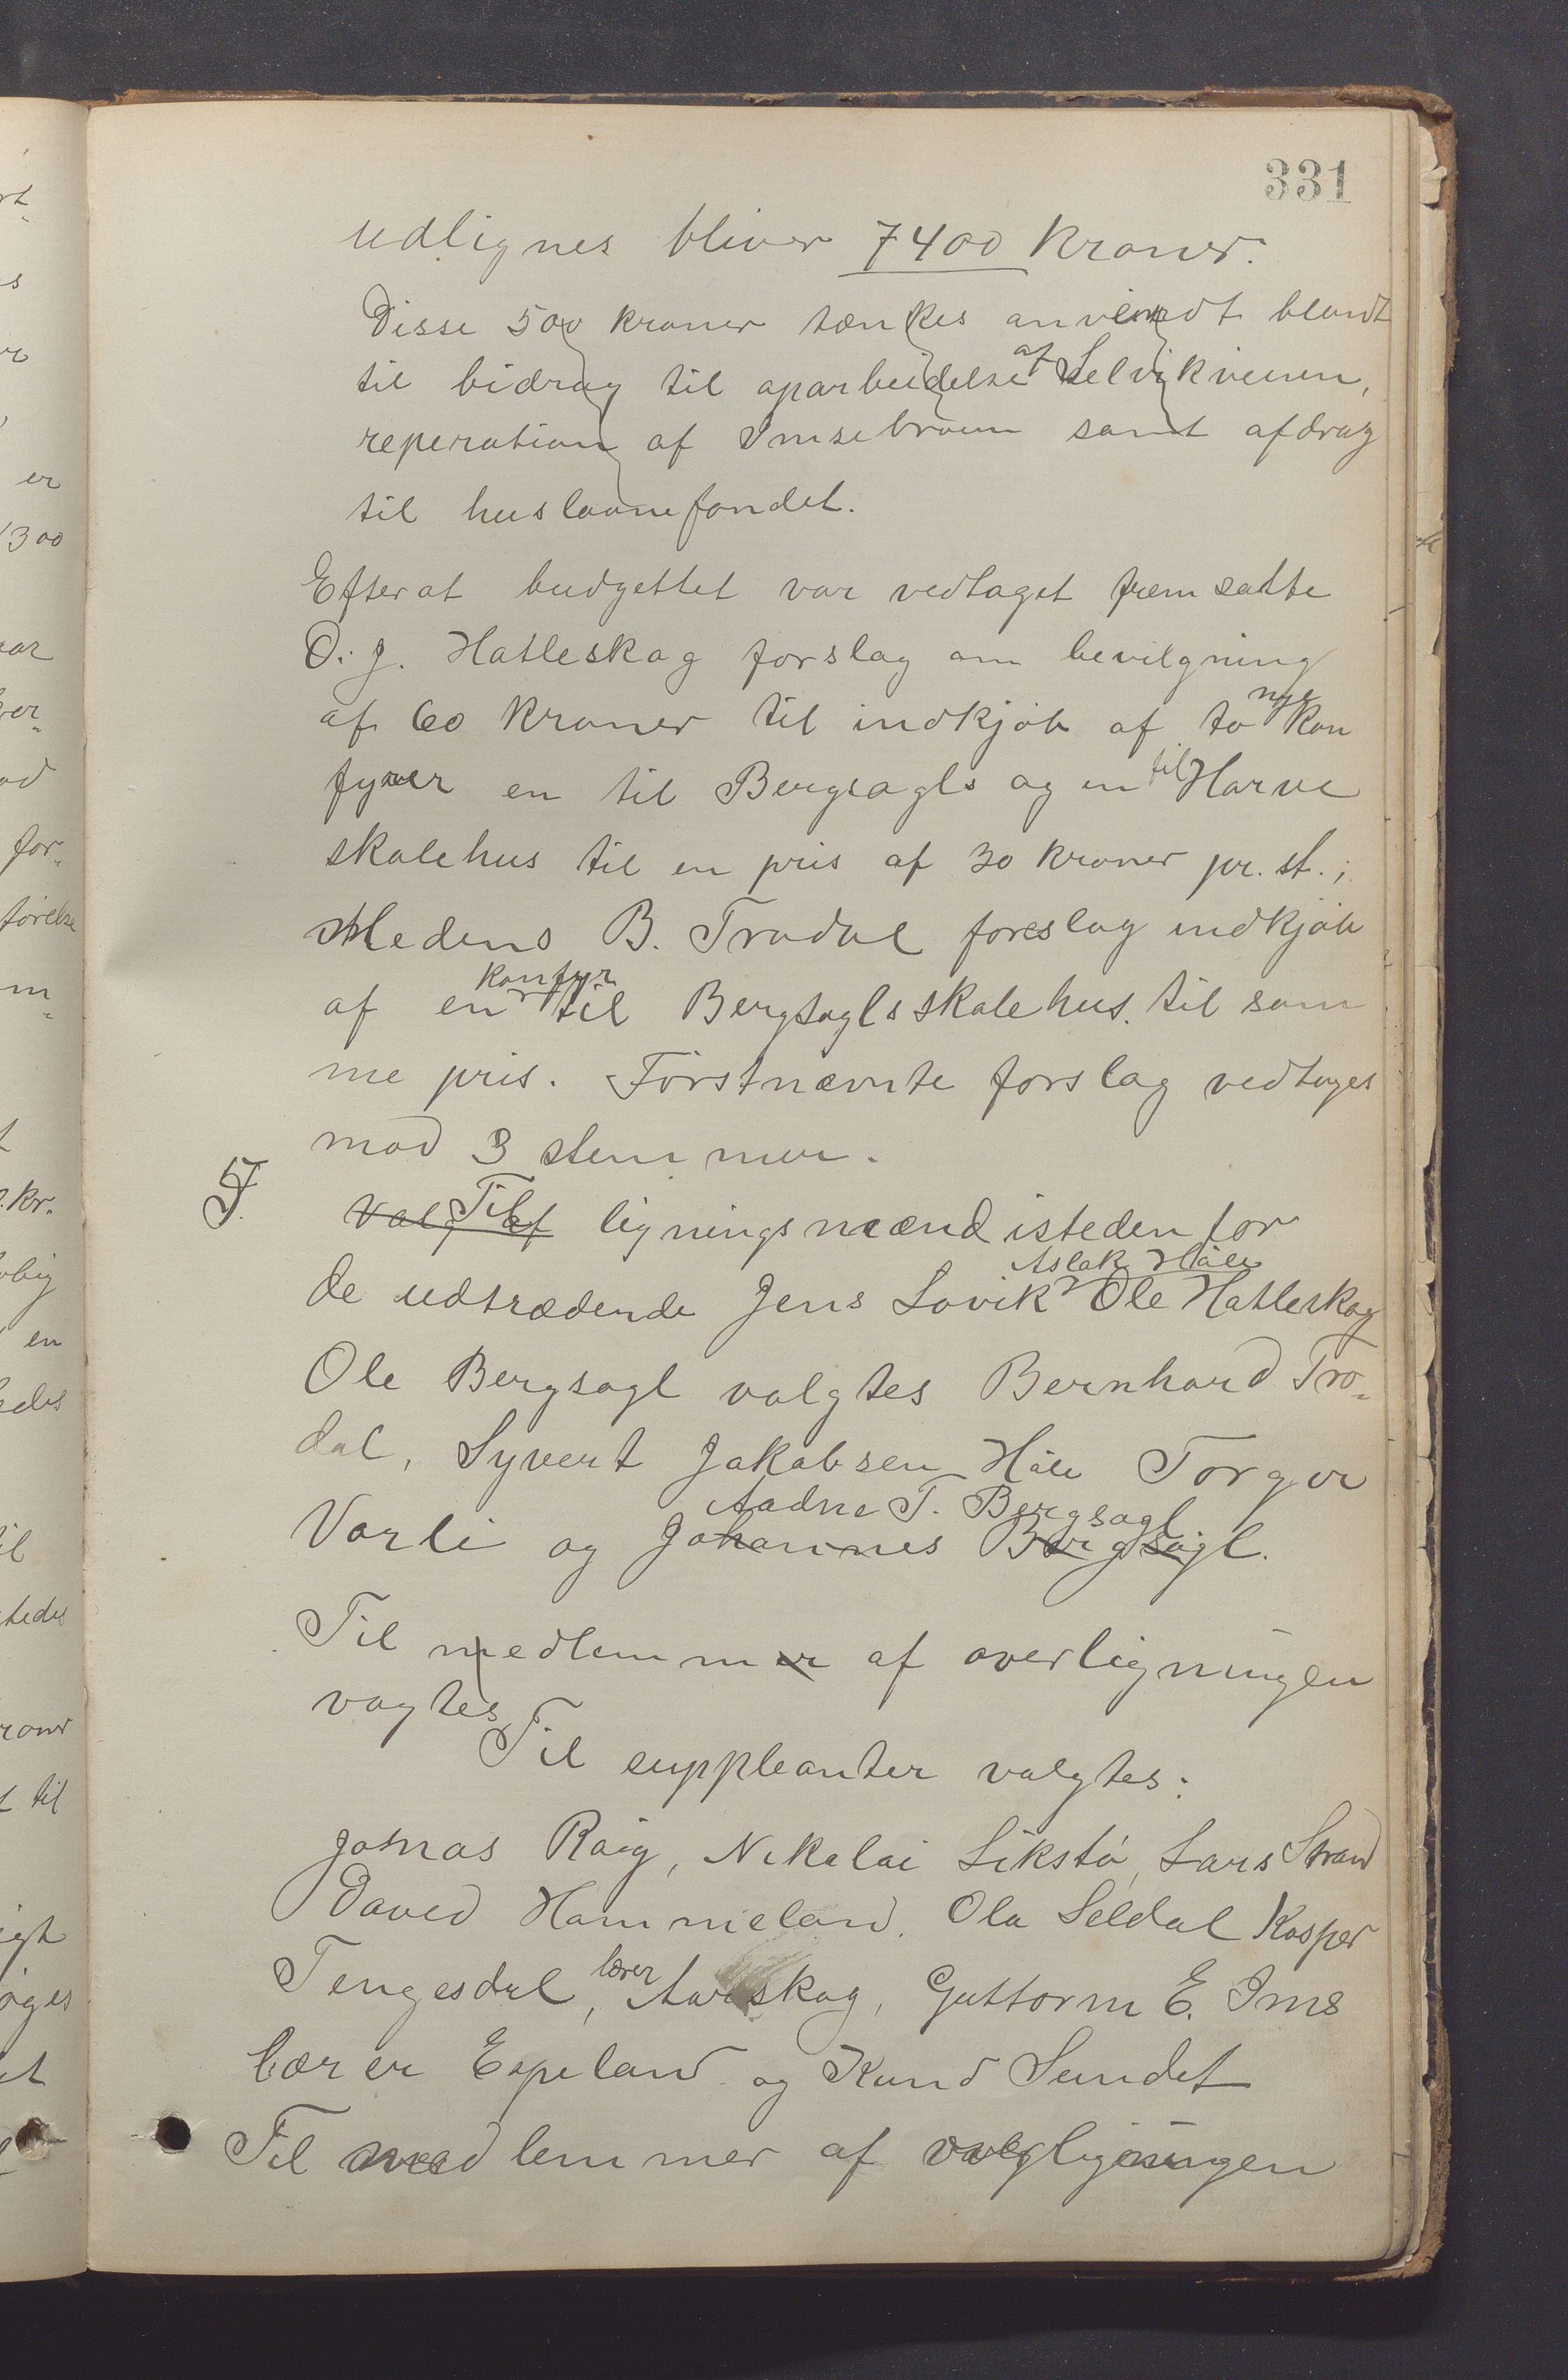 331
udlignes bliver 7400 Kroner.
Disse 500 kroner tænkes anvendt blandt
til bidrag til oparbeidelse af Selvikveien,
reperation af Imsebroen samt afdrag
til huslaanefondet.
Efterat budgettet var vedtaget fremsatte
O. J. Hatleskog forslag om bevilgning
af 60 Kroner til indkjøb af to nye kom
fyrer en til Bergsagls og en til Harve
skolehus til en pris af 30 kroner pr. st.;
Medens B. Trodal foreslog indkjøb
af en komfyr til Bergsagls skolehus til sam
me pris. Førstnævnte forslag vedtoges
mod 3 stemmer.
5. Valg af Til ligningsmænd istedenfor
de udtrædende Jens Lovik Aslak Håle Ole Hatleskog
Ole Bergsagl valgtes Bernhard Tro-
dal, Syvert Jakobsen Håle Torger
Varli og Johannes Bergsagl. Aadne T. Bergsagl
Til medlemmer af overligningen
vagtes
Til suppleanter valgtes:
Jonas Røig, Nikolai Likstø, Lars Strand
David Hammeland. Ola Seldal Kasper
Tengesdal, lærer Aarskog, Guttorm E. Ims
lærer Espeland og Knud Sundet
Til medlemmer af ligningen